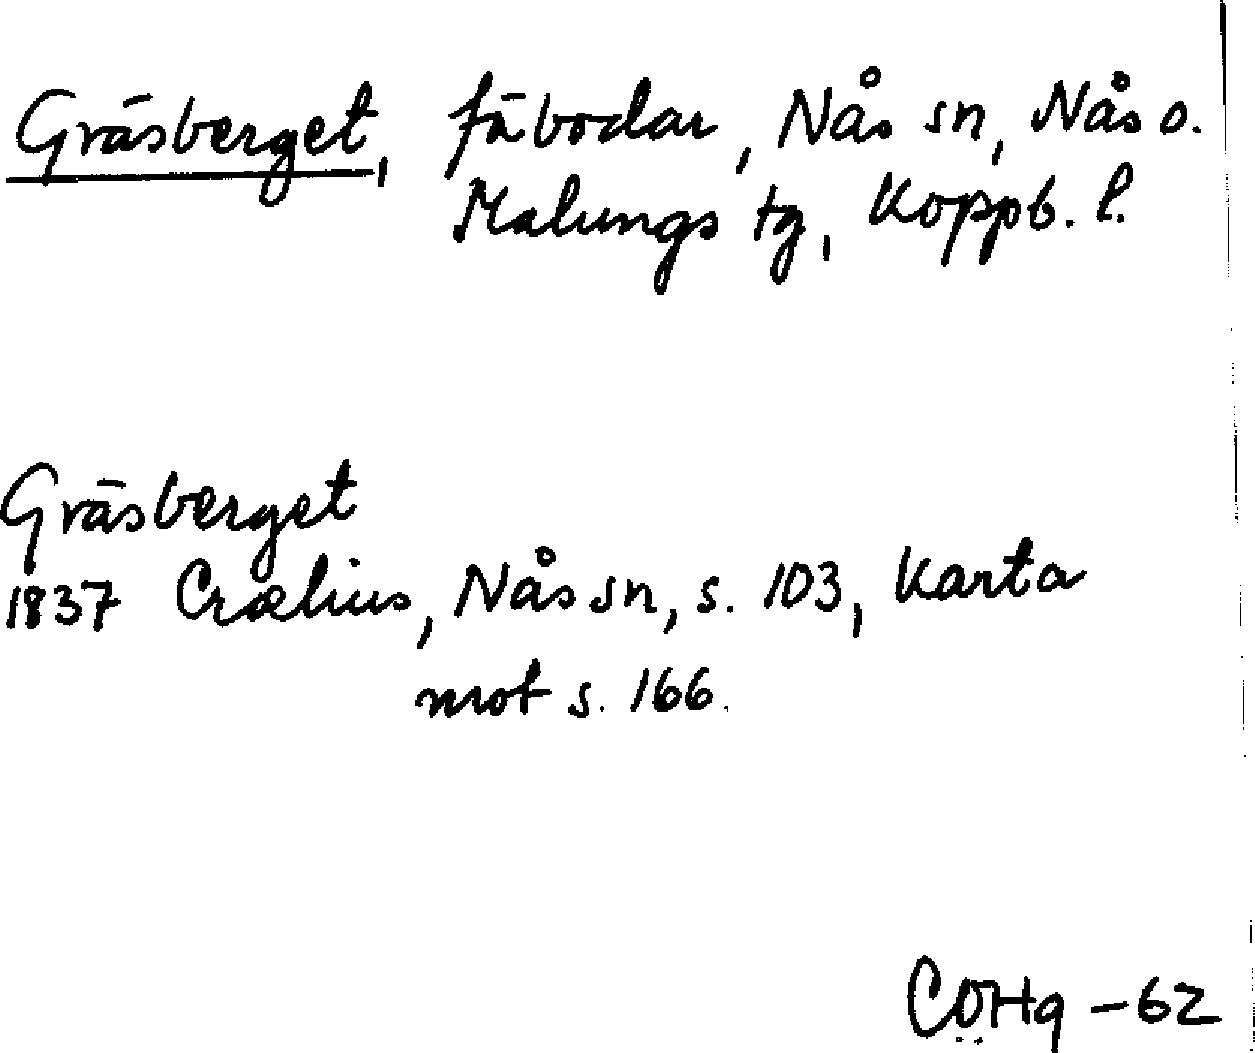 Gräsberget, fäbodar, Nås sn, Nås o.
Malungs tg, Koppb. l.
Gräsberget
1837 Crælius, Nås sn, s. 103, Karta
mot s. 166.
CÖHg -62